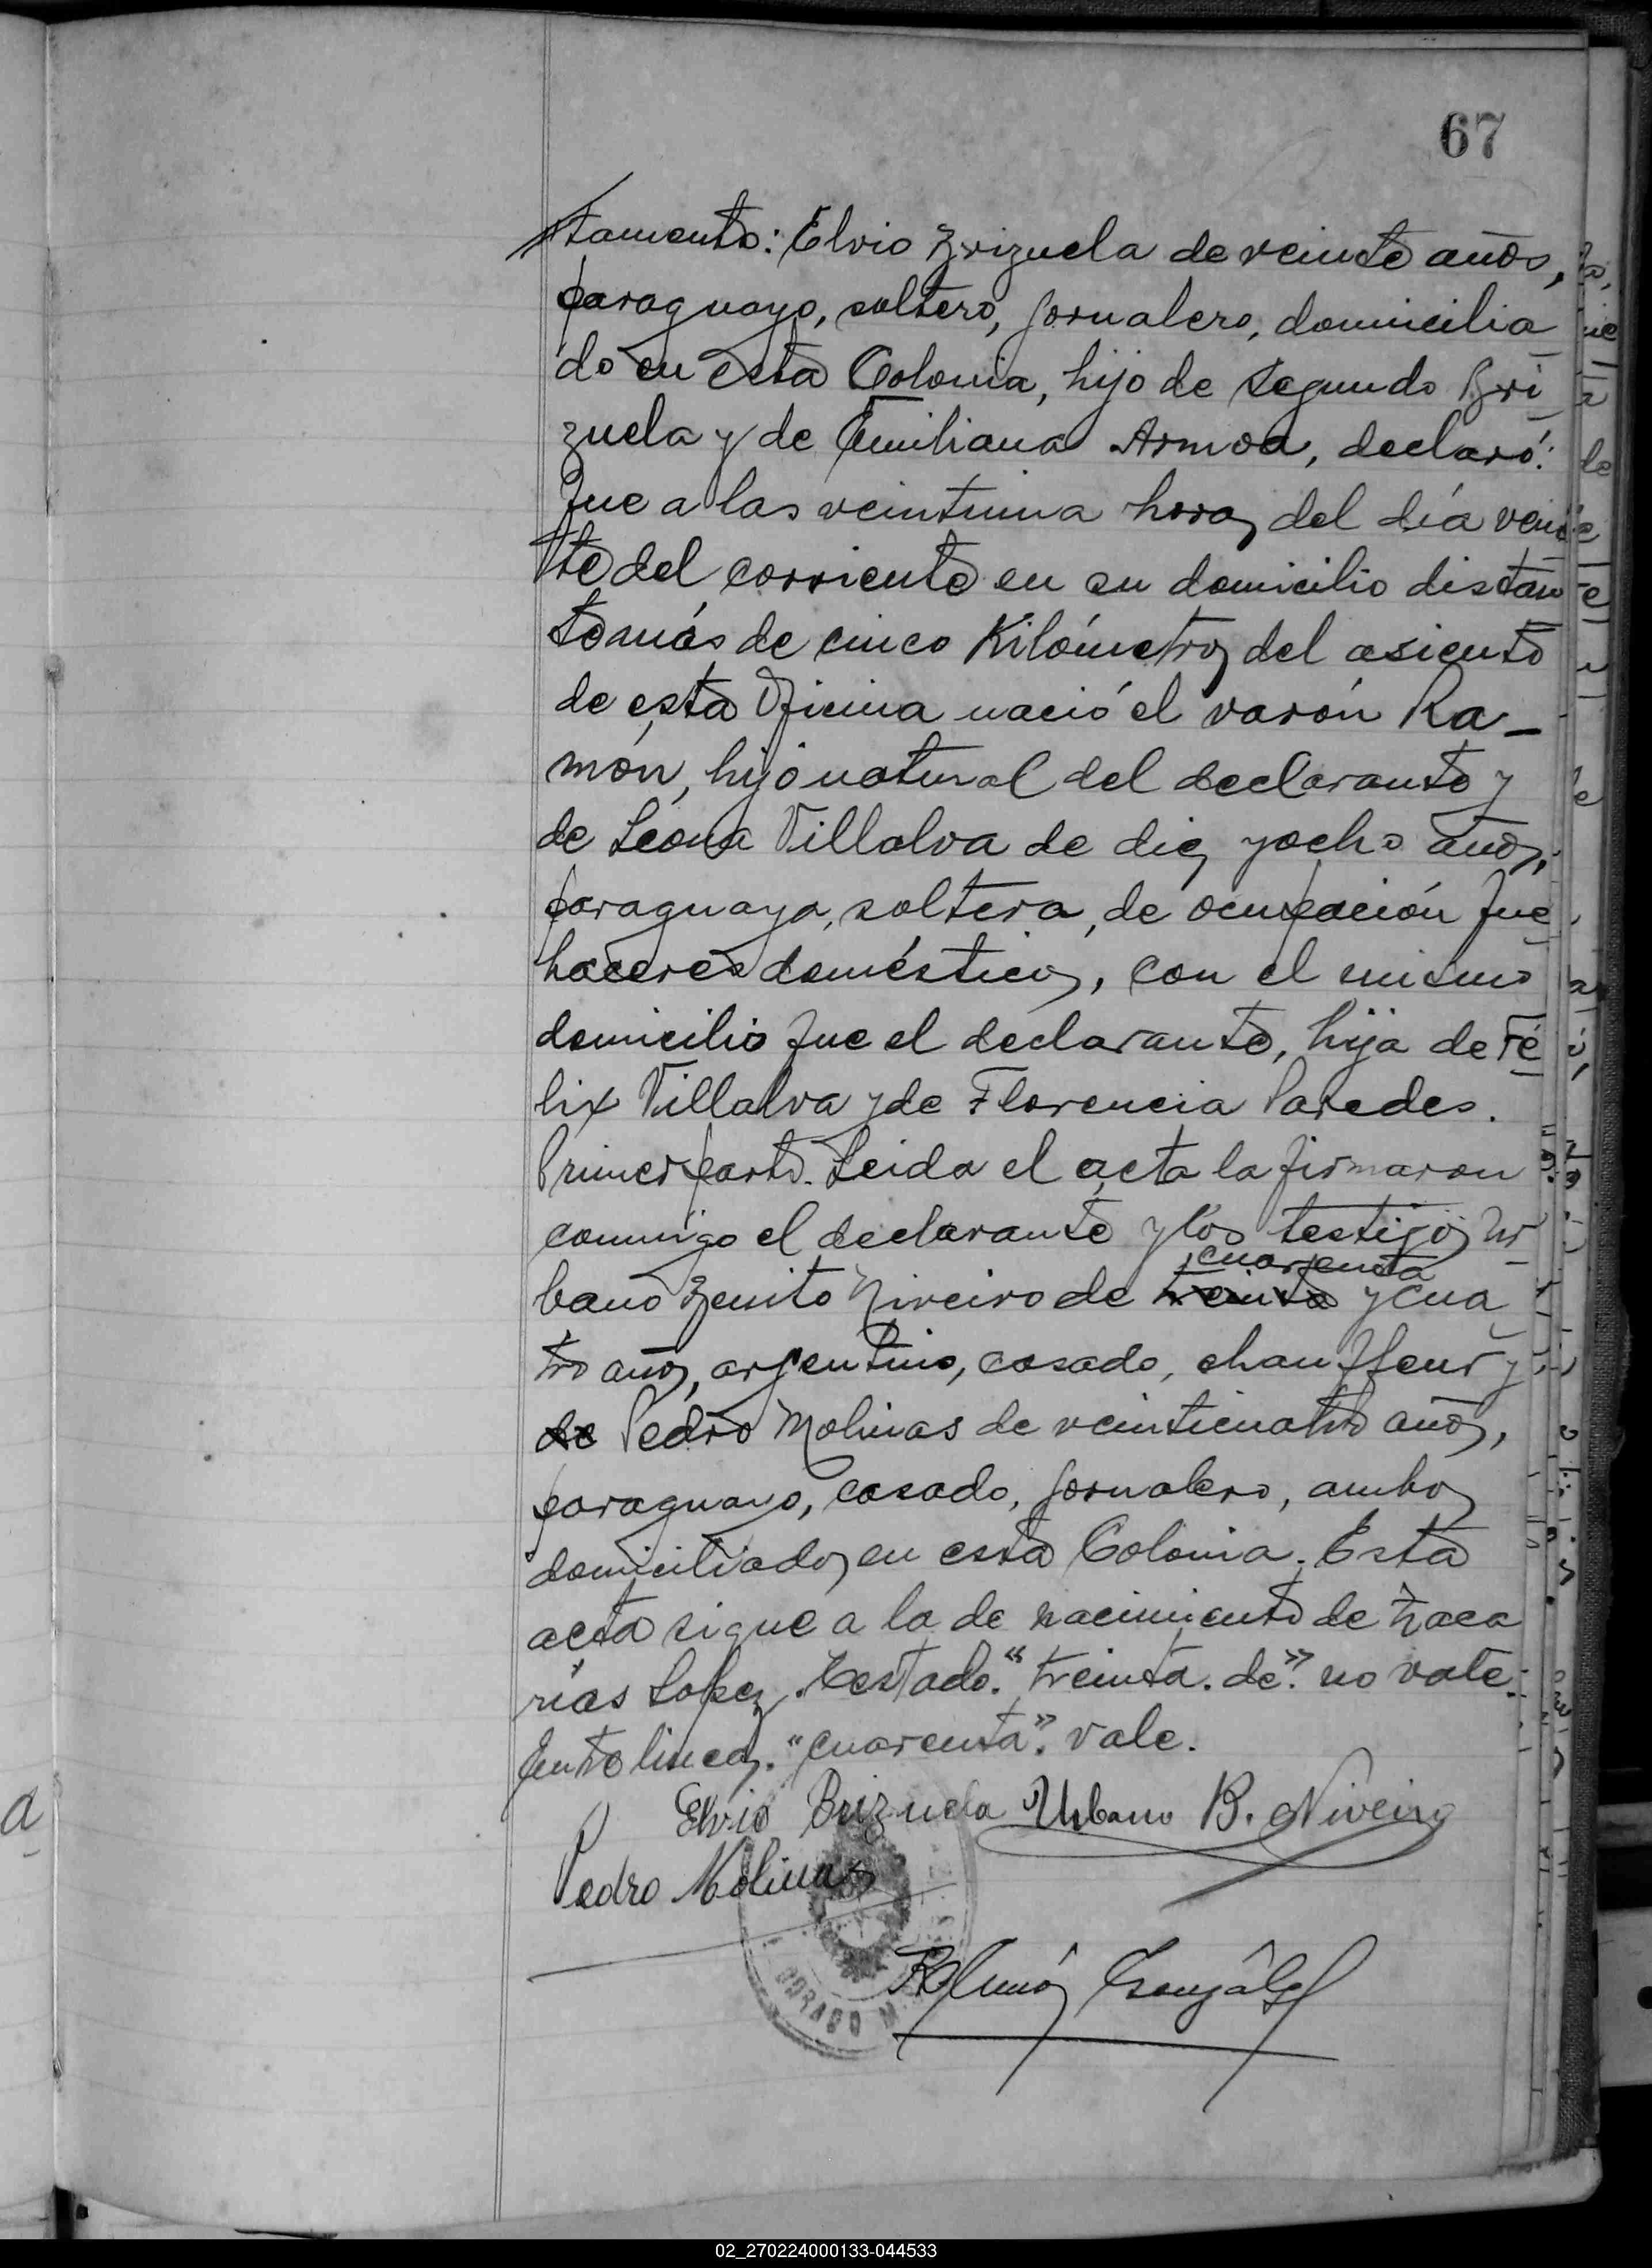 67
tamento: Elvio Brizuela de veinte años,
paraguayo, soltero, jornalero, domicilia
do en esta Colonia, hijo de Segundo Bri
zuela y de Emiliana Armoa, declaró:
Que a las veintiuna horas del día vein
te del corriente en su domicilio distan
te más de cinco Kilómetros del asiento
de esta Oficina nació el varón Ra-
món, hijo natural del declarante y
de Leona Villalva de diez y ocho años,
paraguaya, soltera, de ocupación que
haceres domésticos, con el mismo
domicilio que el declarante, hija de Fé
lix Villalva y de Florencia Paredes.
Primer parto. Leida el acta la firmaron
conmigo el declarante y los testigos Ur
cuarenta
bano Benito Niveiro de treinta y cua
tro años, argentino, casado, chauffeur y
de Pedro Molinas de veinticuatro años,
paraguayo, casado, jornalero, ambos
domiciliados en esta Colonia. Esta
acta sigue a la de nacimiento de Zaca
rías Lopez. Testado: "treinta. de". no vale.
Entre lineas: "cuarenta". Vale.
Elvio Brizuela Urbano B. Niveiro
Pedro Molinas
González
DORADO
a
02_270224000133-044533